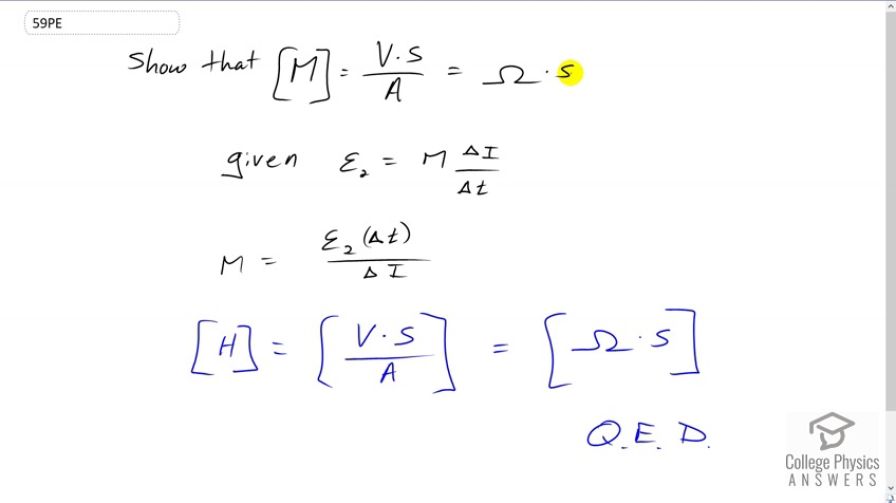 59PE
Show that [M] = V·s/A = Ω·s
given ε₂ = M ΔI/Δt
M = ε₂(Δt)/ΔI
[H] = [V·s/A] = [Ω·s]
Q.E.D.
College Physics
ANSWERS